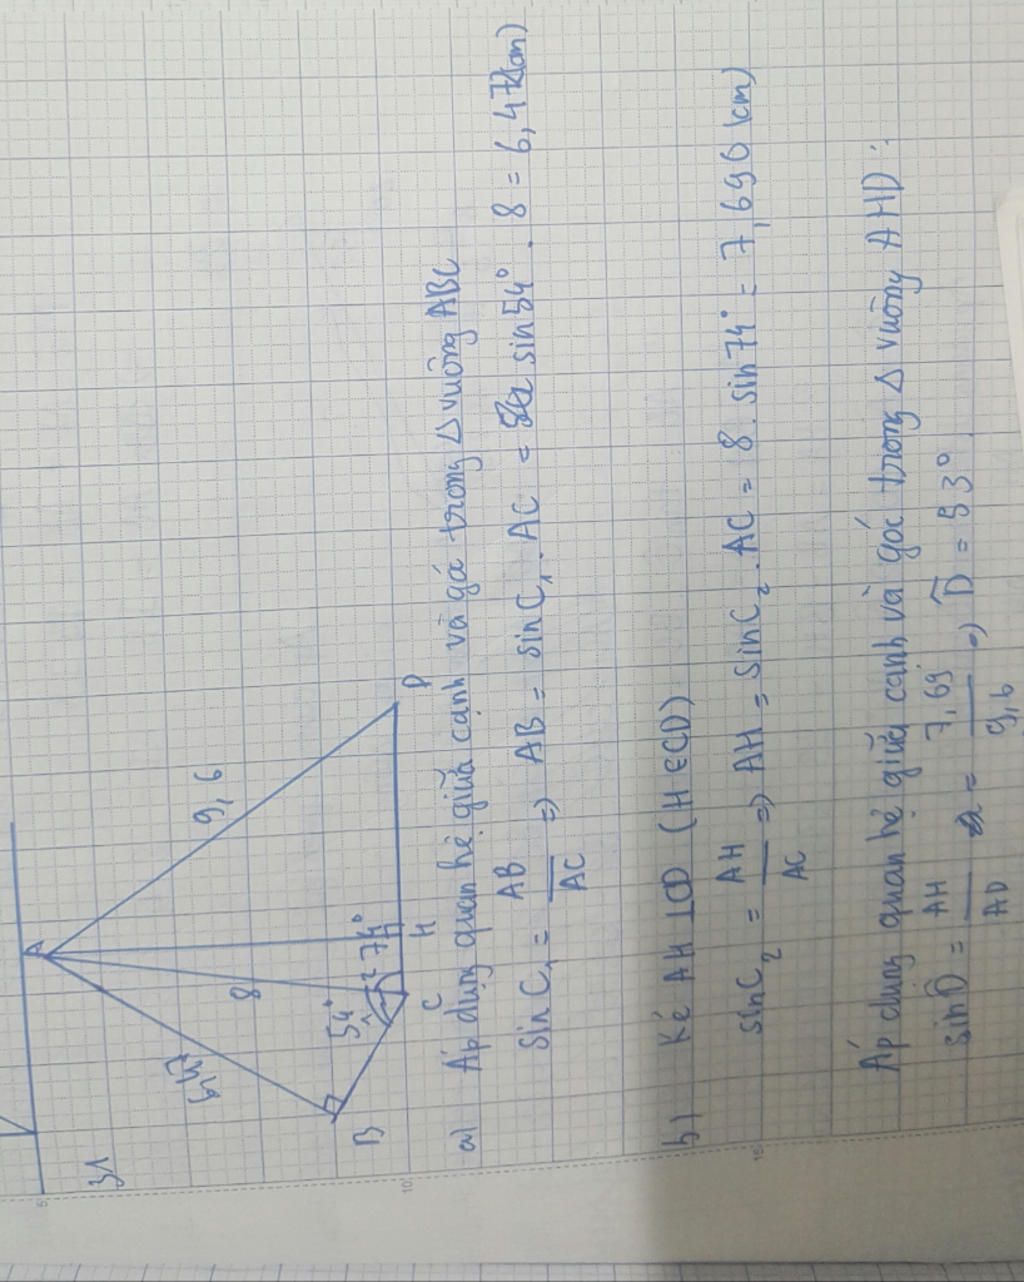 31
A
9,6
8
6,47
54°
1
2 74°
B
C
H
D
a) Áp dụng quan hệ giữa cạnh và gó trong Δ vuông ABC
sin C₁ = AB/AC => AB = sin C₁ . AC = sin 54° . 8 = 6,47 (cm)
b) Kẻ AH ⊥ CD (H ∈ CD)
sin C₂ = AH/AC => AH = sin C₂ . AC = 8 . sin 74° = 7,690 (cm)
Áp dụng quan hệ giữa cạnh và góc trong Δ vuông AHD :
sin D̂ = AH/AD = 7,69/9,6 => D̂ = 53°.
10
15